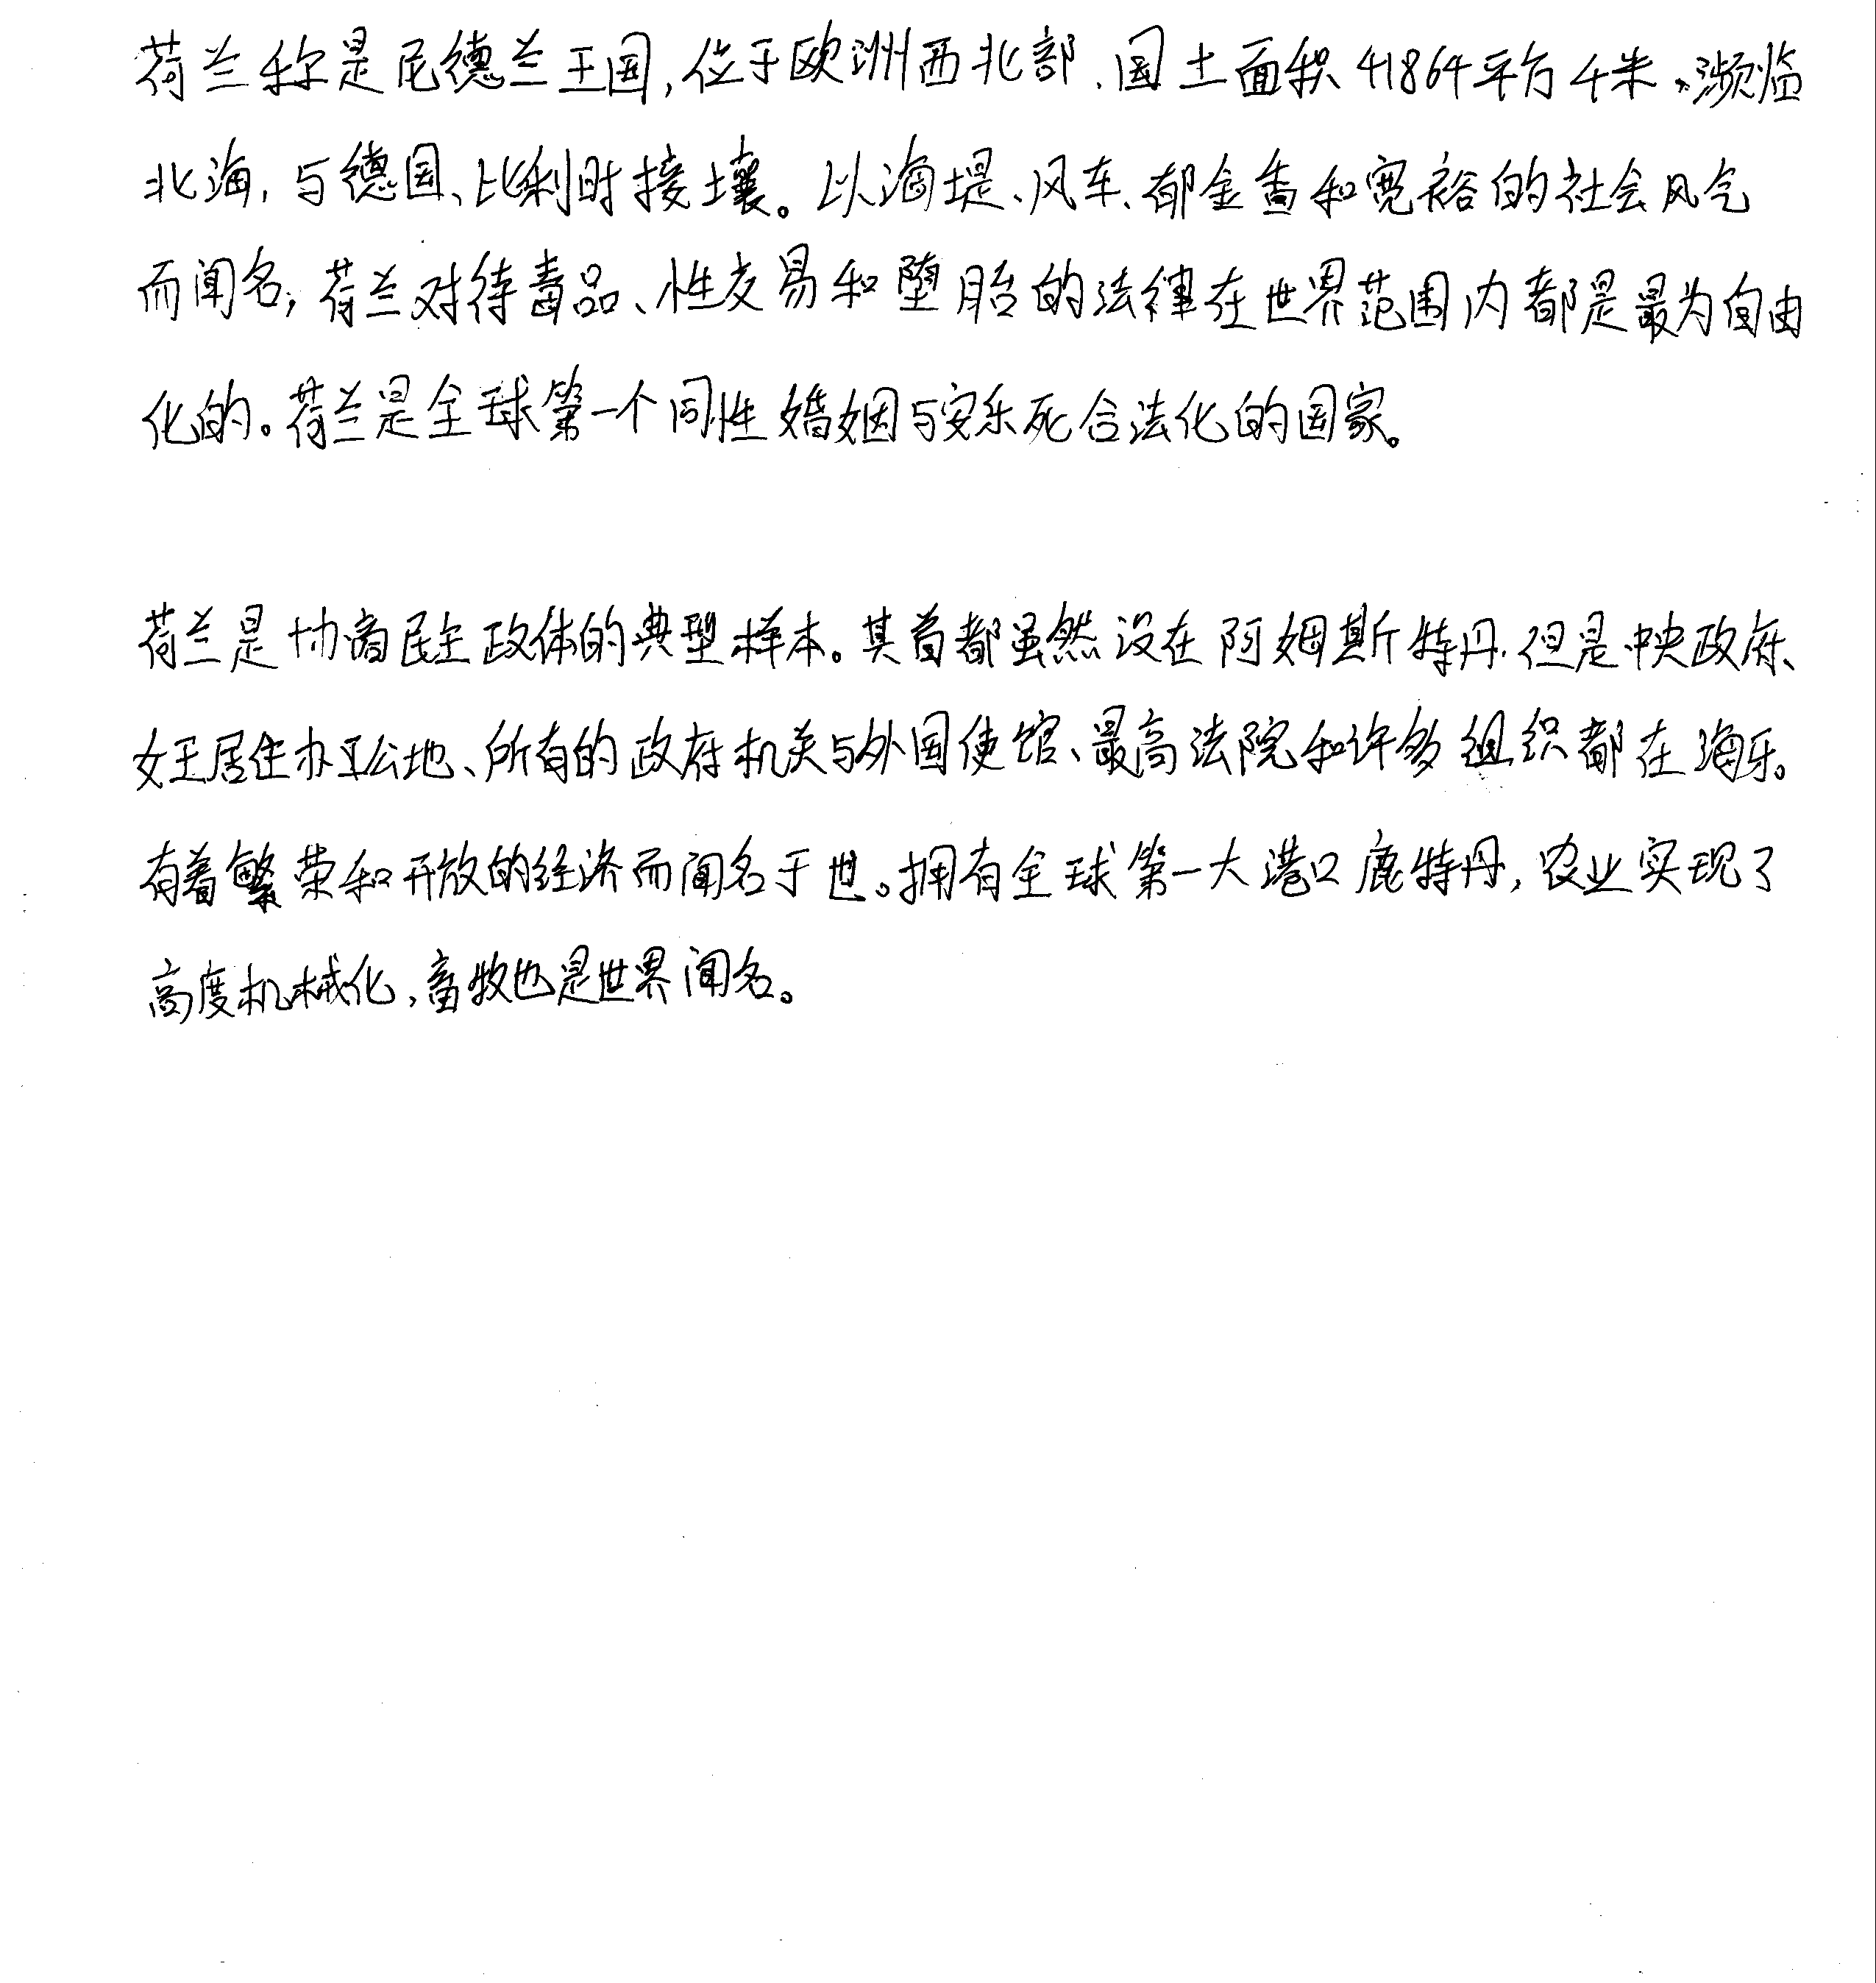 荷兰称是尼德兰王国,位于欧洲西北部.国土面积41864平方千米。濒临
北海,与德国、比利时接壤。以海堤、风车、郁金香和宽裕的社会风气
而闻名,荷兰对待毒品、性交易和堕胎的法律在世界范围内都是最为自由
化的。荷兰是全球第一个同性婚姻与安乐死合法化的国家。
荷兰是协商民主政体的典型样本。其首都虽然设在阿姆斯特丹.但是中央政府、
女王居住办公地、所有的政府机关与外国使馆、最高法院和许多组织都在海牙。
有着繁荣和开放的经济而闻名于世。拥有全球第一大港口鹿特丹,农业实现了
高度机械化,畜牧也是世界闻名。